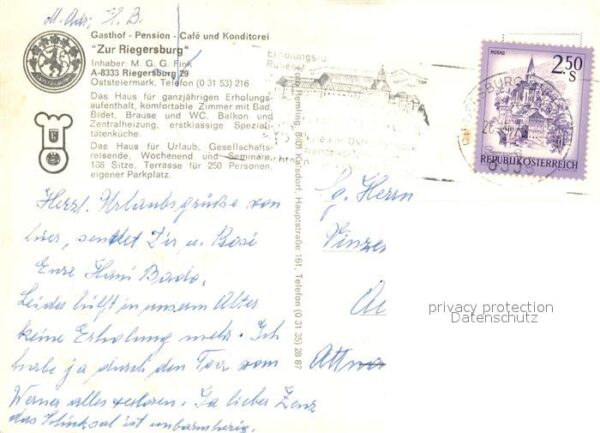 Gasthof - Pension - Café und Konditorei
"Zur Riegersburg"
Inhaber: M. G. G. Fink
A-8333 Riegersburg 29
Oststeiermark, Telefon (0 31 53) 216
Das Haus für ganzjährigen Erholungs-
aufenthalt, komfortable Zimmer mit Bad,
Bidet, Brause und WC, Balkon und
Zentralheizung, erstklassige Speziali-
tätenküche.
Das Haus für Urlaub, Gesellschafts-
reisende, Wochenend und Seminare,
Sitze, Terrasse für 250 Personen,
eigener Parkplatz.
Herzl. Urlaubsgrüße von
hier, sendet Dir u. Rosi
Eure Hansi
Leider hilft in unserm Alter
keine Erholung mehr. Ich
habe ja durch den Tod vom
Werner alles verloren. Ja lieber
das Schicksal ist unbarmherzig.
8401 Kalsdorf, Hauptstraße 161, Telefon (0 31 35) 28 87
Erholungs-u
MURAU
2.50
S
REPUBLIK ÖSTERREICH
Sg. Herrn
Vinzen
privacy protection
Datenschutz